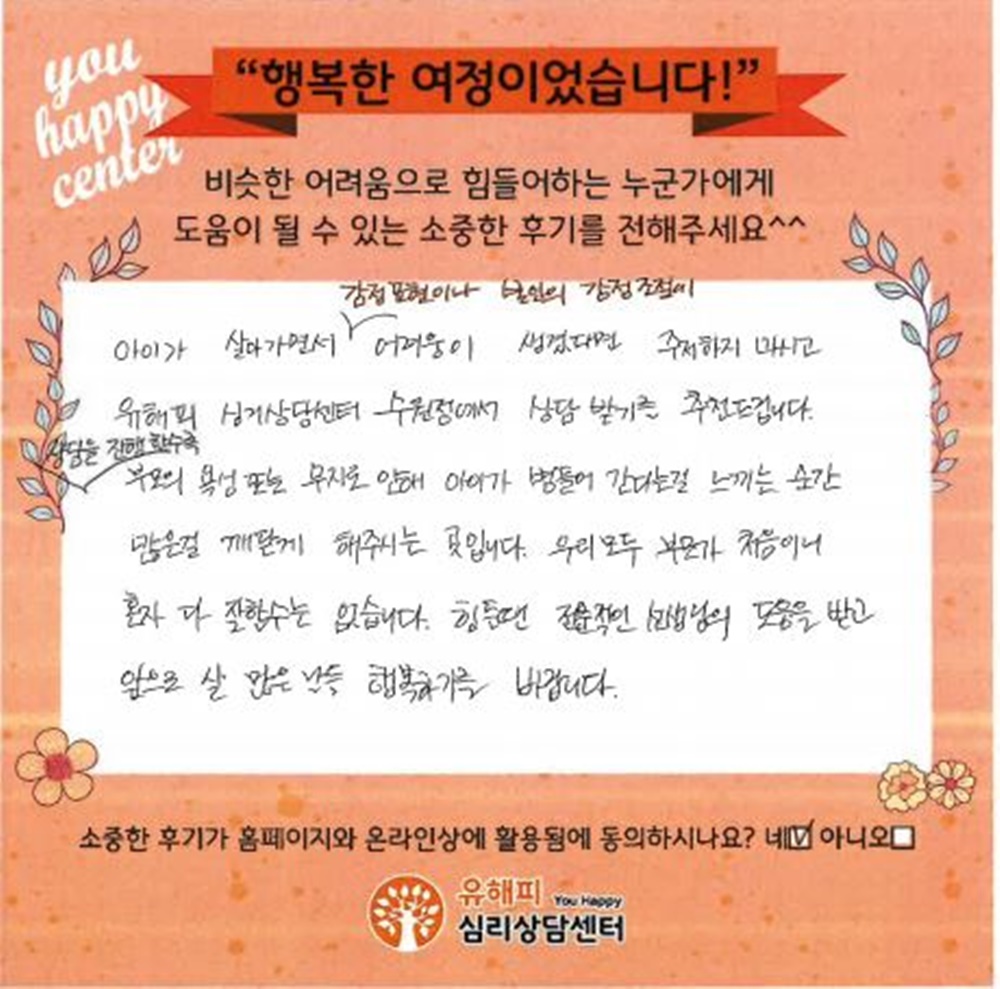 you
happy
center
“행복한 여정이었습니다!”
비슷한 어려움으로 힘들어하는 누군가에게
도움이 될 수 있는 소중한 후기를 전해주세요^^
감정표현이나 본인의 감정조절이
아이가 살아가면서 어려움이 생겼다면 주저하지 마시고
유해피 심리상담센터 수원점에서 상담 받기를 추천드립니다.
상담을 진행할수록
부모의 욕심 또는 무지로 인해 아이가 병들어 간다는걸 느끼는 순간
많은걸 깨닫게 해주시는 곳입니다. 우리모두 부모가 처음이니
혼자 다 잘할수는 없습니다. 힘들땐 전문적인 선생님의 도움을 받고
앞으로 살 많은 날들 행복하기를 바랍니다.
소중한 후기가 홈페이지와 온라인상에 활용됨에 동의하시나요? 네☑ 아니오☐
유해피 You Happy
심리상담센터